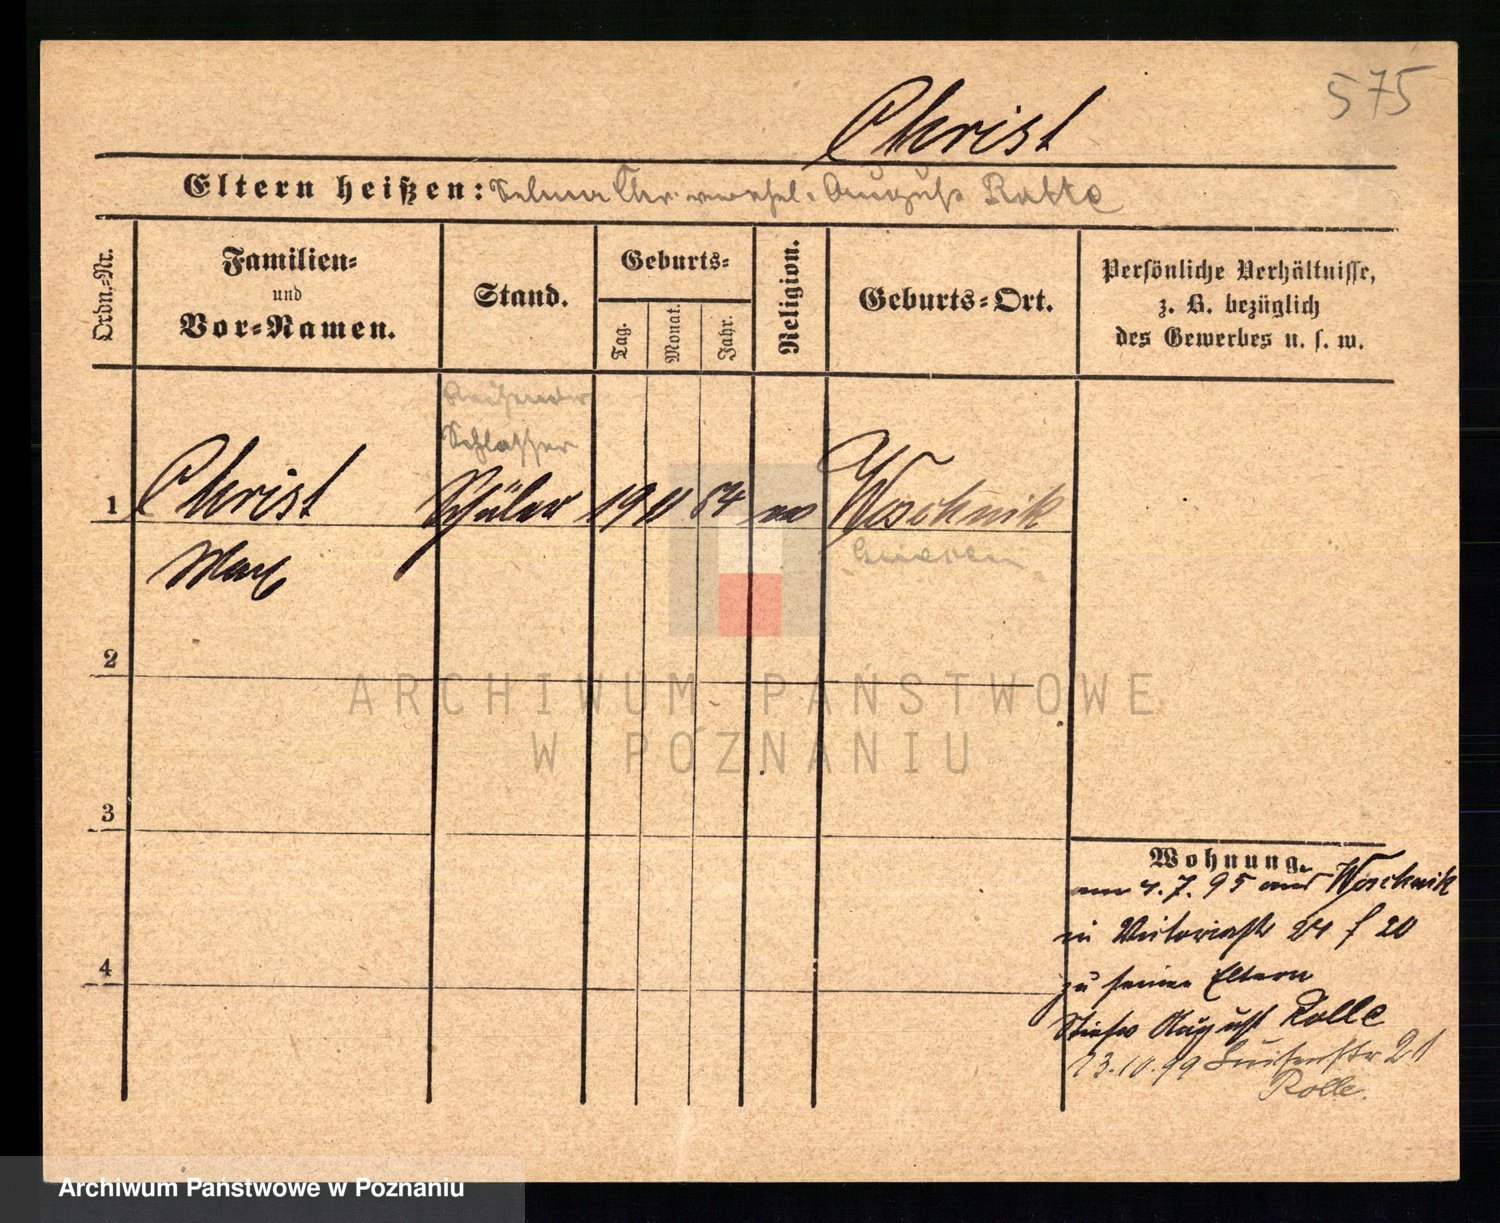 575
Christ
Eltern heißen: Selma Chr. verehel. August Rolle
Ordn.-Nr.
Familien- und Vor-Namen.
Stand.
Geburts-
Tag.
Monat.
Jahr.
Religion.
Geburts-Ort.
Persönliche Verhältnisse, z. B. bezüglich des Gewerbes u. s. w.
Schlosser
1 Christ Schüler 19 11 84 Woschnik
Max
2
3
4
Wohnung.
am 4.7.95 aus Woschnik
in Victoriastr 24 f 20
zu seinen Eltern
August Rolle
13.10.99 Luisenstr 21
Rolle.
ARCHIWUM PAŃSTWOWE
W POZNANIU
Archiwum Państwowe w Poznaniu